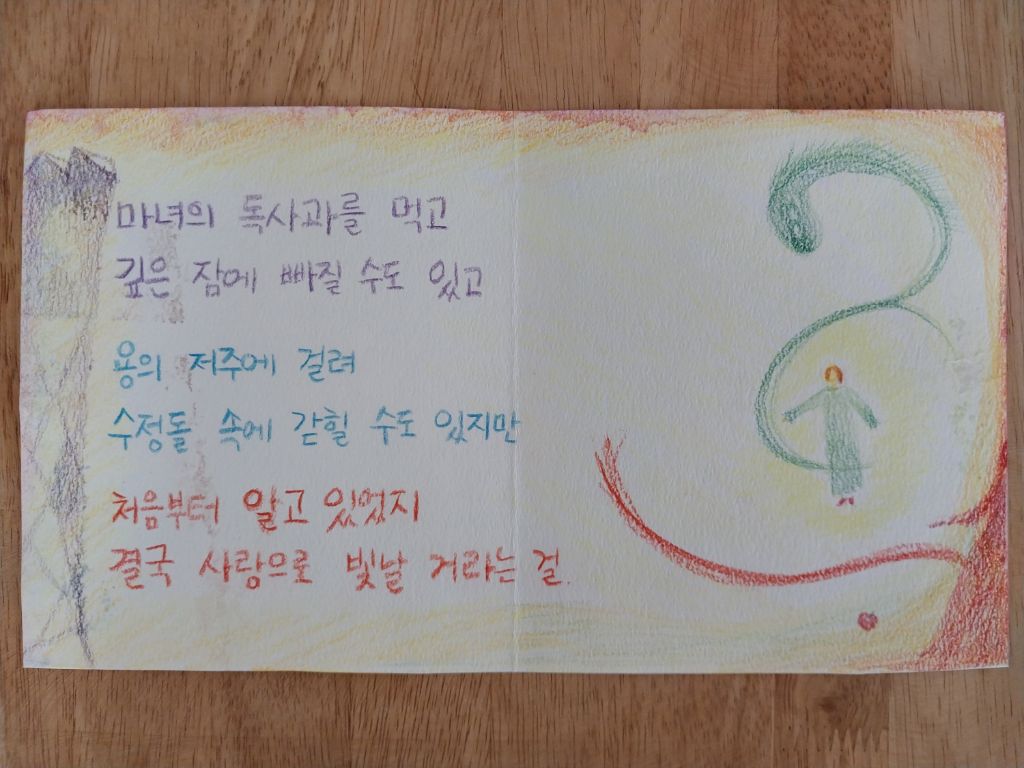 마녀의 독사과를 먹고
깊은 잠에 빠질 수도 있고
용의 저주에 걸려
수정돌 속에 갇힐 수도 있지만
처음부터 알고 있었지
결국 사랑으로 빛날 거라는 걸.